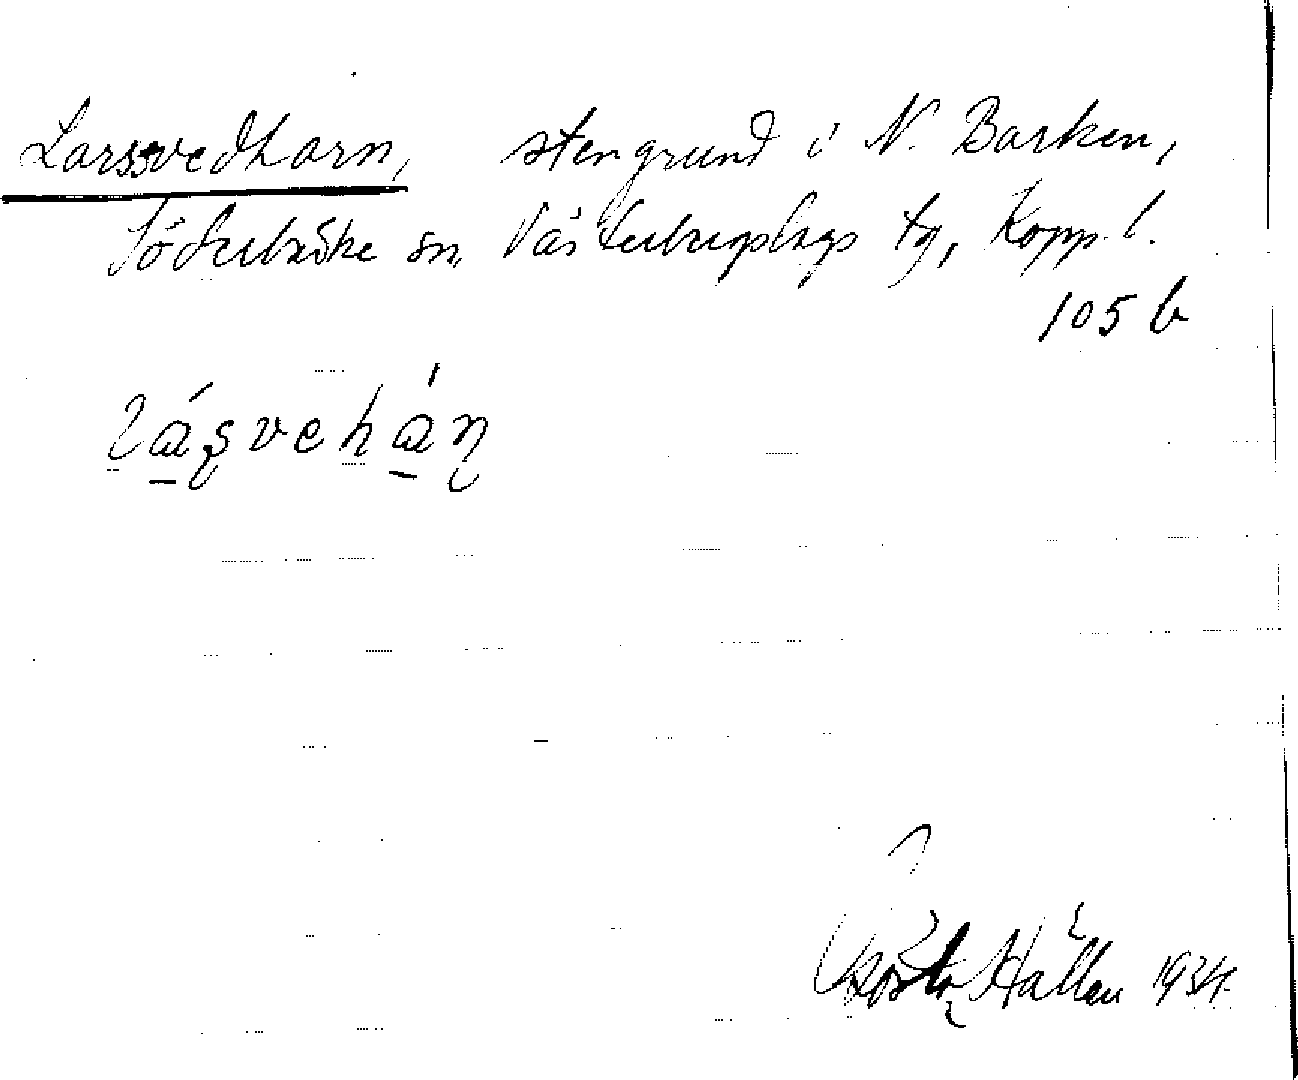 Larssvedharn, stengrund i N. Barken,
Söderbärke sn, Västerbergslags tg, Kopp. l.
105 b
lásvehán
Gösta Hallen 1934.